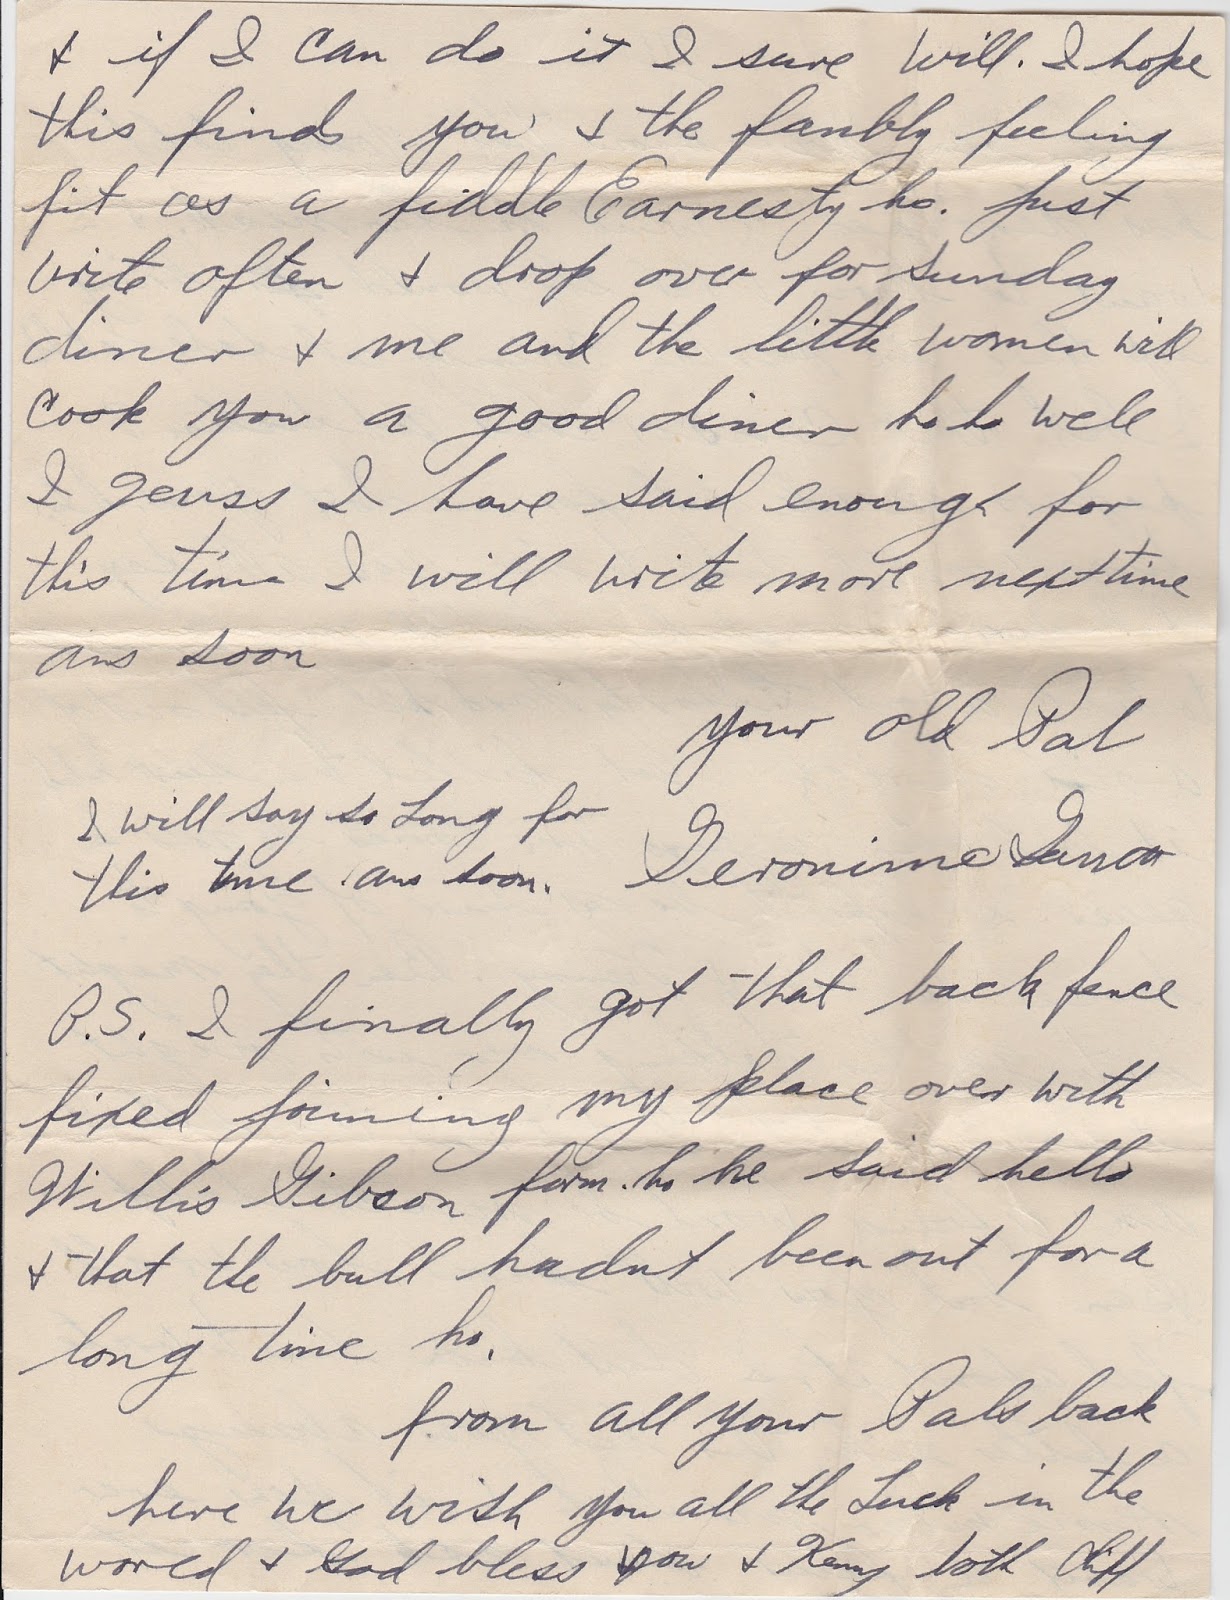 & if I can do it I sure will. I hope
this finds you & the fambly feeling
fit as a fiddle Earnesty ho. just
write often & drop over for sunday
diner & me and the little women will
cook you a good diner ho ho well
I geuss I have said enough for
this time I will write more next time
ans soon
your old Pal
I will say so Long for
this time ans soon.
Geronimo
P.S. I finally got that back fence
fixed joining my place over with
Willis Gibson farm. ho he said hello
& that the bull hadnt been out for a
long time ho.
from all your Pals back
here we wish you all the Luck in the
world & God bless you & Kenny both Cliff